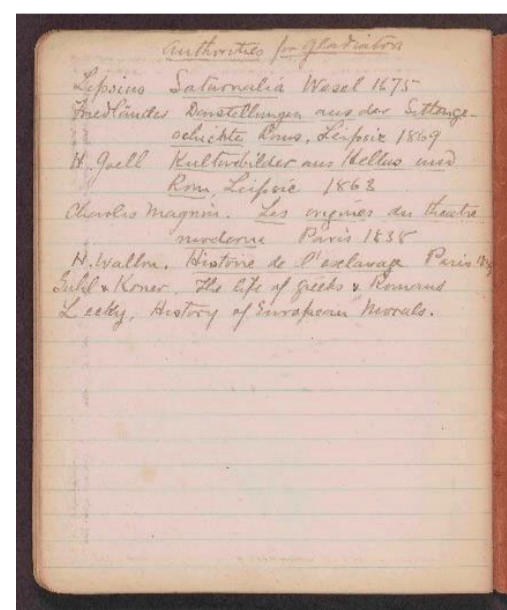 Authorities for gladiators
Lipsius Saturnalia Wesel 1675
Friedländer Darstellungen aus der Sittenge-
schichte Roms, Leipsic 1869
H. Goell Kulturbilder aus Hellas und
Rom, Leipsic 1863
Charles Magnin. Les origines du theatre
moderne Paris 1838
H. Wallon. Histoire de l'esclavage Paris
Guhl & Koner. The life of greeks & Romans
Lecky, History of European Morals.